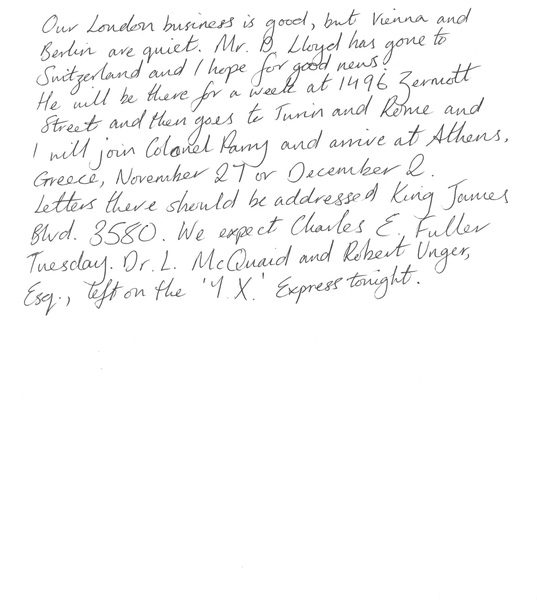 Our London business is good, but Vienna and
Berlin are quiet. Mr. D. Lloyd has gone to
Switzerland and I hope for good news.
He will be there for a week at 1496 Zermott
Street and then goes to Turin and Rome and
I will join Colonel Parry and arrive at Athens,
Greece, November 27 or December 2.
Letters there should be addressed King James
Blvd. 3580. We expect Charles E. Fuller
Tuesday. Dr. L. McQuaid and Robert Unger,
Esq., left on the 'Y.X.' Express tonight.